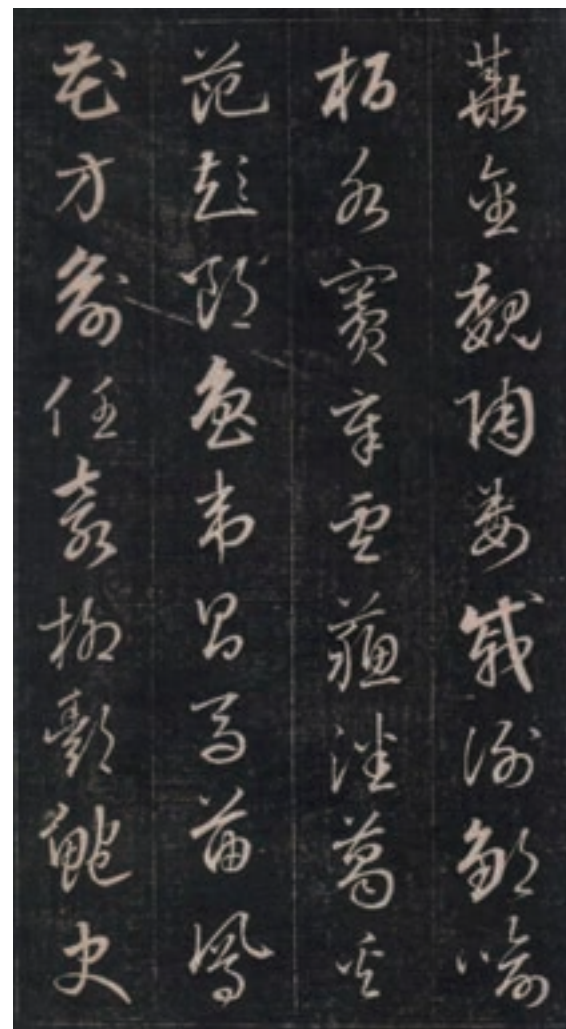 華金魏陶姜戚謝鄒喻
柏水竇章雲蘇潘葛奚
范彭郎魯韋昌馬苗鳳
花方俞任袁柳酆鮑史